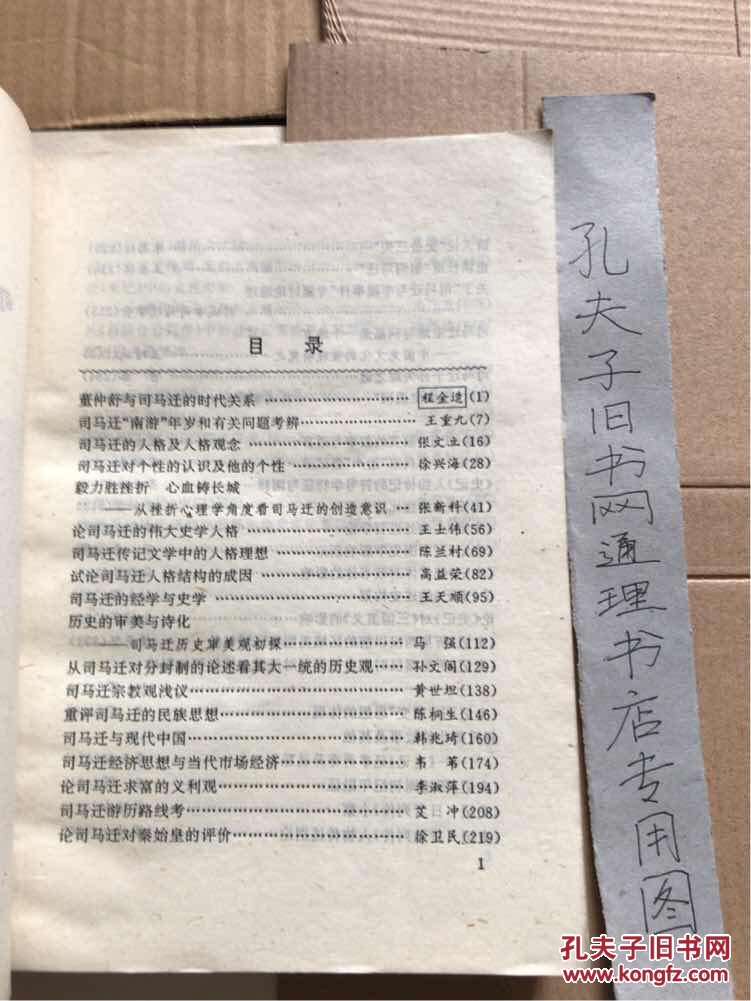 目 录
董仲舒与司马迁的时代关系 ……………………… 程金造(1)
司马迁“南游”年岁和有关问题考辨 ……………… 王重九(7)
司马迁的人格及人格观念 ……………………… 张文立(16)
司马迁对个性的认识及他的个性 ……………… 徐兴海(28)
毅力胜挫折 心血铸长城
——从挫折心理学角度看司马迁的创造意识 … 张新科(41)
论司马迁的伟大史学人格 ……………………… 王士伟(56)
司马迁传记文学中的人格理想 ………………… 陈兰村(69)
试论司马迁人格结构的成因 …………………… 高益荣(82)
司马迁的经学与史学 …………………………… 王天顺(95)
历史的审美与诗化
——司马迁历史审美观初探 ………………… 马 强(112)
从司马迁对分封制的论述看其大一统的历史观 …… 孙文阁(129)
司马迁宗教观浅议 ……………………………… 黄世坦(138)
重评司马迁的民族思想 ………………………… 陈桐生(146)
司马迁与现代中国 ……………………………… 韩兆琦(160)
司马迁经济思想与当代市场经济 ……………… 韦 苇(174)
论司马迁求富的义利观 ………………………… 李淑萍(194)
司马迁游历路线考 ……………………………… 艾 冲(208)
论司马迁对秦始皇的评价 ……………………… 徐卫民(219)
1
孔夫子旧书网通理书店专用图
孔夫子旧书网
www.kongfz.com